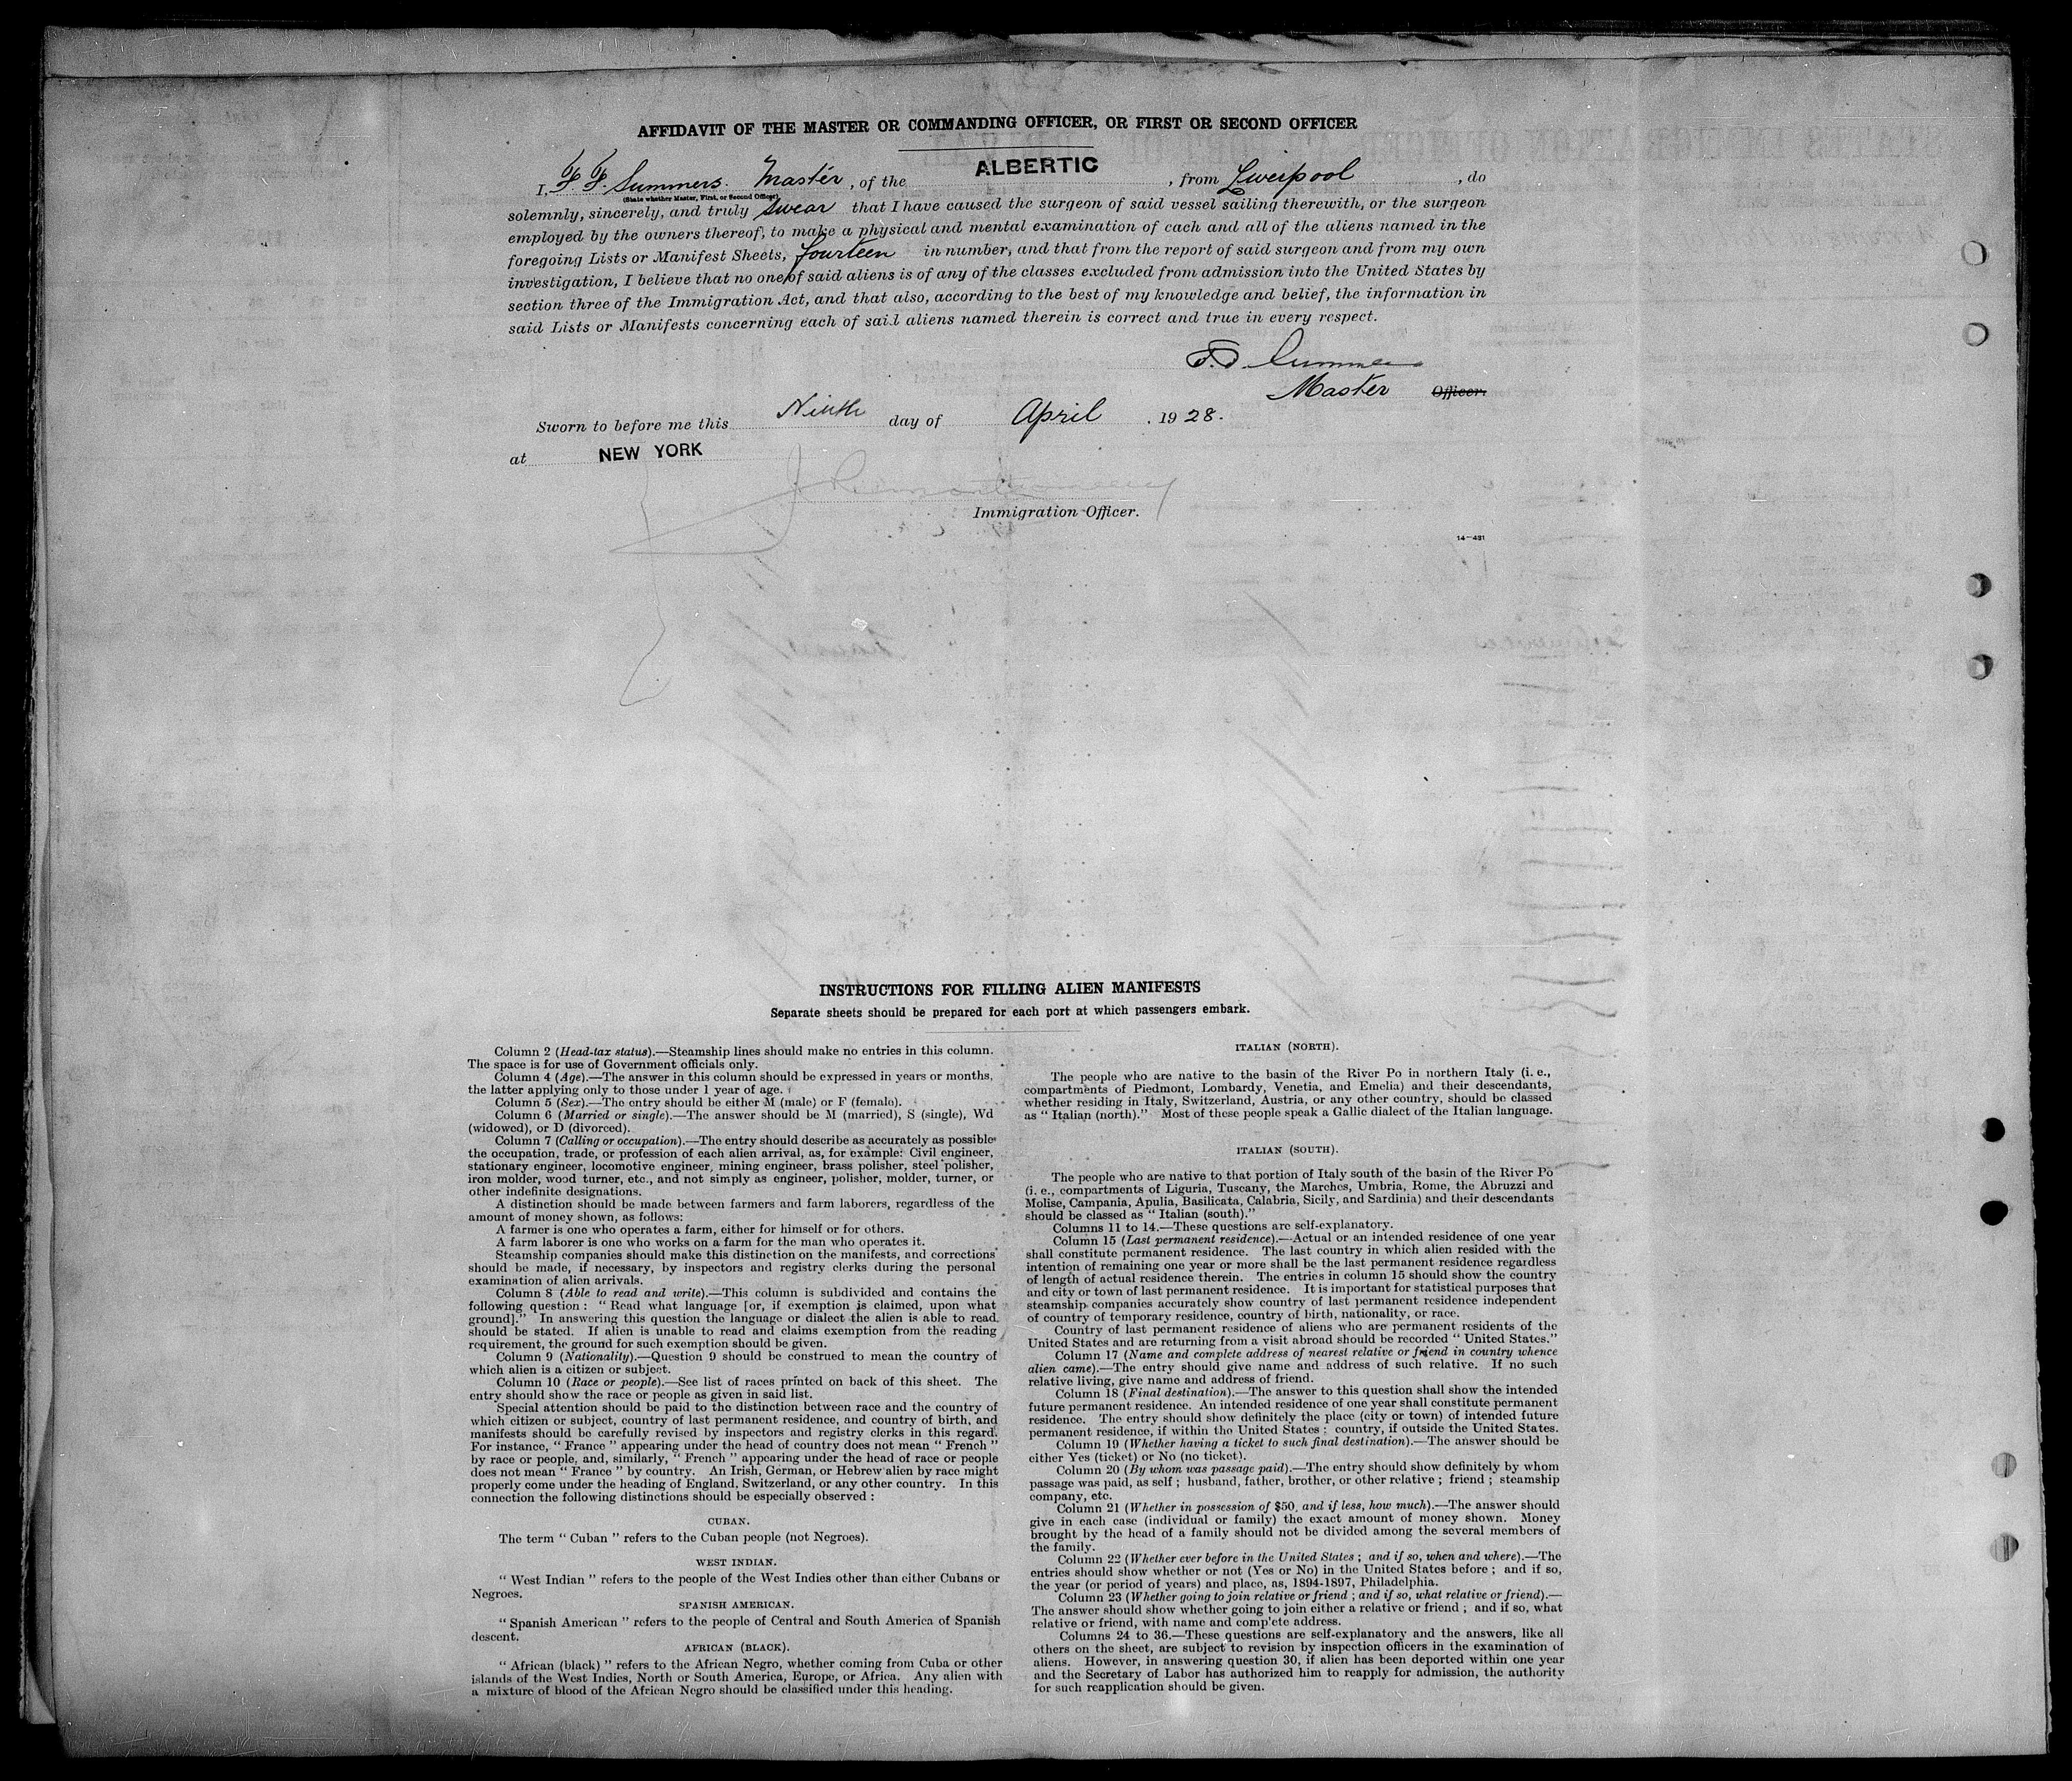 AFFIDAVIT OF THE MASTER OR COMMANDING OFFICER, OR FIRST OR SECOND OFFICER
I, F. F. Summers. Master, of the ALBERTIC, from Liverpool, do
(State whether Master, First, or Second Officer)
solemnly, sincerely, and truly swear that I have caused the surgeon of said vessel sailing therewith, or the surgeon
employed by the owners thereof, to make a physical and mental examination of each and all of the aliens named in the
foregoing Lists or Manifest Sheets, fourteen in number, and that from the report of said surgeon and from my own
investigation, I believe that no one of said aliens is of any of the classes excluded from admission into the United States by
section three of the Immigration Act, and that also, according to the best of my knowledge and belief, the information in
said Lists or Manifests concerning each of said aliens named therein is correct and true in every respect.
F. F. Summers
Master Officer.
Sworn to before me this Ninth day of April, 1928.
at NEW YORK
Immigration Officer.
14—431
INSTRUCTIONS FOR FILLING ALIEN MANIFESTS
Separate sheets should be prepared for each port at which passengers embark.
Column 2 (Head-tax status).—Steamship lines should make no entries in this column.
The space is for use of Government officials only.
Column 4 (Age).—The answer in this column should be expressed in years or months,
the latter applying only to those under 1 year of age.
Column 5 (Sex).—The entry should be either M (male) or F (female).
Column 6 (Married or single).—The answer should be M (married), S (single), Wd
(widowed), or D (divorced).
Column 7 (Calling or occupation).—The entry should describe as accurately as possible
the occupation, trade, or profession of each alien arrival, as, for example: Civil engineer,
stationary engineer, locomotive engineer, mining engineer, brass polisher, steel polisher,
iron molder, wood turner, etc., and not simply as engineer, polisher, molder, turner, or
other indefinite designations.
A distinction should be made between farmers and farm laborers, regardless of the
amount of money shown, as follows:
A farmer is one who operates a farm, either for himself or for others.
A farm laborer is one who works on a farm for the man who operates it.
Steamship companies should make this distinction on the manifests, and corrections
should be made, if necessary, by inspectors and registry clerks during the personal
examination of alien arrivals.
Column 8 (Able to read and write).—This column is subdivided and contains the
following question: "Read what language [or, if exemption is claimed, upon what
ground]." In answering this question the language or dialect the alien is able to read
should be stated. If alien is unable to read and claims exemption from the reading
requirement, the ground for such exemption should be given.
Column 9 (Nationality).—Question 9 should be construed to mean the country of
which alien is a citizen or subject.
Column 10 (Race or people).—See list of races printed on back of this sheet. The
entry should show the race or people as given in said list.
Special attention should be paid to the distinction between race and the country of
which citizen or subject, country of last permanent residence, and country of birth, and
manifests should be carefully revised by inspectors and registry clerks in this regard.
For instance, "France" appearing under the head of country does not mean "French"
by race or people, and, similarly, "French" appearing under the head of race or people
does not mean "France" by country. An Irish, German, or Hebrew alien by race might
properly come under the heading of England, Switzerland, or any other country. In this
connection the following distinctions should be especially observed:
CUBAN.
The term "Cuban" refers to the Cuban people (not Negroes).
WEST INDIAN.
"West Indian" refers to the people of the West Indies other than either Cubans or
Negroes.
SPANISH AMERICAN.
"Spanish American" refers to the people of Central and South America of Spanish
descent.
AFRICAN (BLACK).
"African (black)" refers to the African Negro, whether coming from Cuba or other
islands of the West Indies, North or South America, Europe, or Africa. Any alien with
a mixture of blood of the African Negro should be classified under this heading.
ITALIAN (NORTH).
The people who are native to the basin of the River Po in northern Italy (i. e.,
compartments of Piedmont, Lombardy, Venetia, and Emelia) and their descendants,
whether residing in Italy, Switzerland, Austria, or any other country, should be classed
as "Italian (north)." Most of these people speak a Gallic dialect of the Italian language.
ITALIAN (SOUTH).
The people who are native to that portion of Italy south of the basin of the River Po
(i. e., compartments of Liguria, Tuscany, the Marches, Umbria, Rome, the Abruzzi and
Molise, Campania, Apulia, Basilicata, Calabria, Sicily, and Sardinia) and their descendants
should be classed as "Italian (south)."
Columns 11 to 14.—These questions are self-explanatory.
Column 15 (Last permanent residence).—Actual or an intended residence of one year
shall constitute permanent residence. The last country in which alien resided with the
intention of remaining one year or more shall be the last permanent residence regardless
of length of actual residence therein. The entries in column 15 should show the country
and city or town of last permanent residence. It is important for statistical purposes that
steamship companies accurately show country of last permanent residence independent
of country of temporary residence, country of birth, nationality, or race.
Country of last permanent residence of aliens who are permanent residents of the
United States and are returning from a visit abroad should be recorded "United States."
Column 17 (Name and complete address of nearest relative or friend in country whence
alien came).—The entry should give name and address of such relative. If no such
relative living, give name and address of friend.
Column 18 (Final destination).—The answer to this question shall show the intended
future permanent residence. An intended residence of one year shall constitute permanent
residence. The entry should show definitely the place (city or town) of intended future
permanent residence, if within the United States; country, if outside the United States.
Column 19 (Whether having a ticket to such final destination).—The answer should be
either Yes (ticket) or No (no ticket).
Column 20 (By whom was passage paid).—The entry should show definitely by whom
passage was paid, as self; husband, father, brother, or other relative; friend; steamship
company, etc.
Column 21 (Whether in possession of $50, and if less, how much).—The answer should
give in each case (individual or family) the exact amount of money shown. Money
brought by the head of a family should not be divided among the several members of
the family.
Column 22 (Whether ever before in the United States; and if so, when and where).—The
entries should show whether or not (Yes or No) in the United States before; and if so,
the year (or period of years) and place, as, 1894-1897, Philadelphia.
Column 23 (Whether going to join relative or friend; and if so, what relative or friend).—
The answer should show whether going to join either a relative or friend; and if so, what
relative or friend, with name and complete address.
Columns 24 to 36.—These questions are self-explanatory and the answers, like all
others on the sheet, are subject to revision by inspection officers in the examination of
aliens. However, in answering question 30, if alien has been deported within one year
and the Secretary of Labor has authorized him to reapply for admission, the authority
for such reapplication should be given.